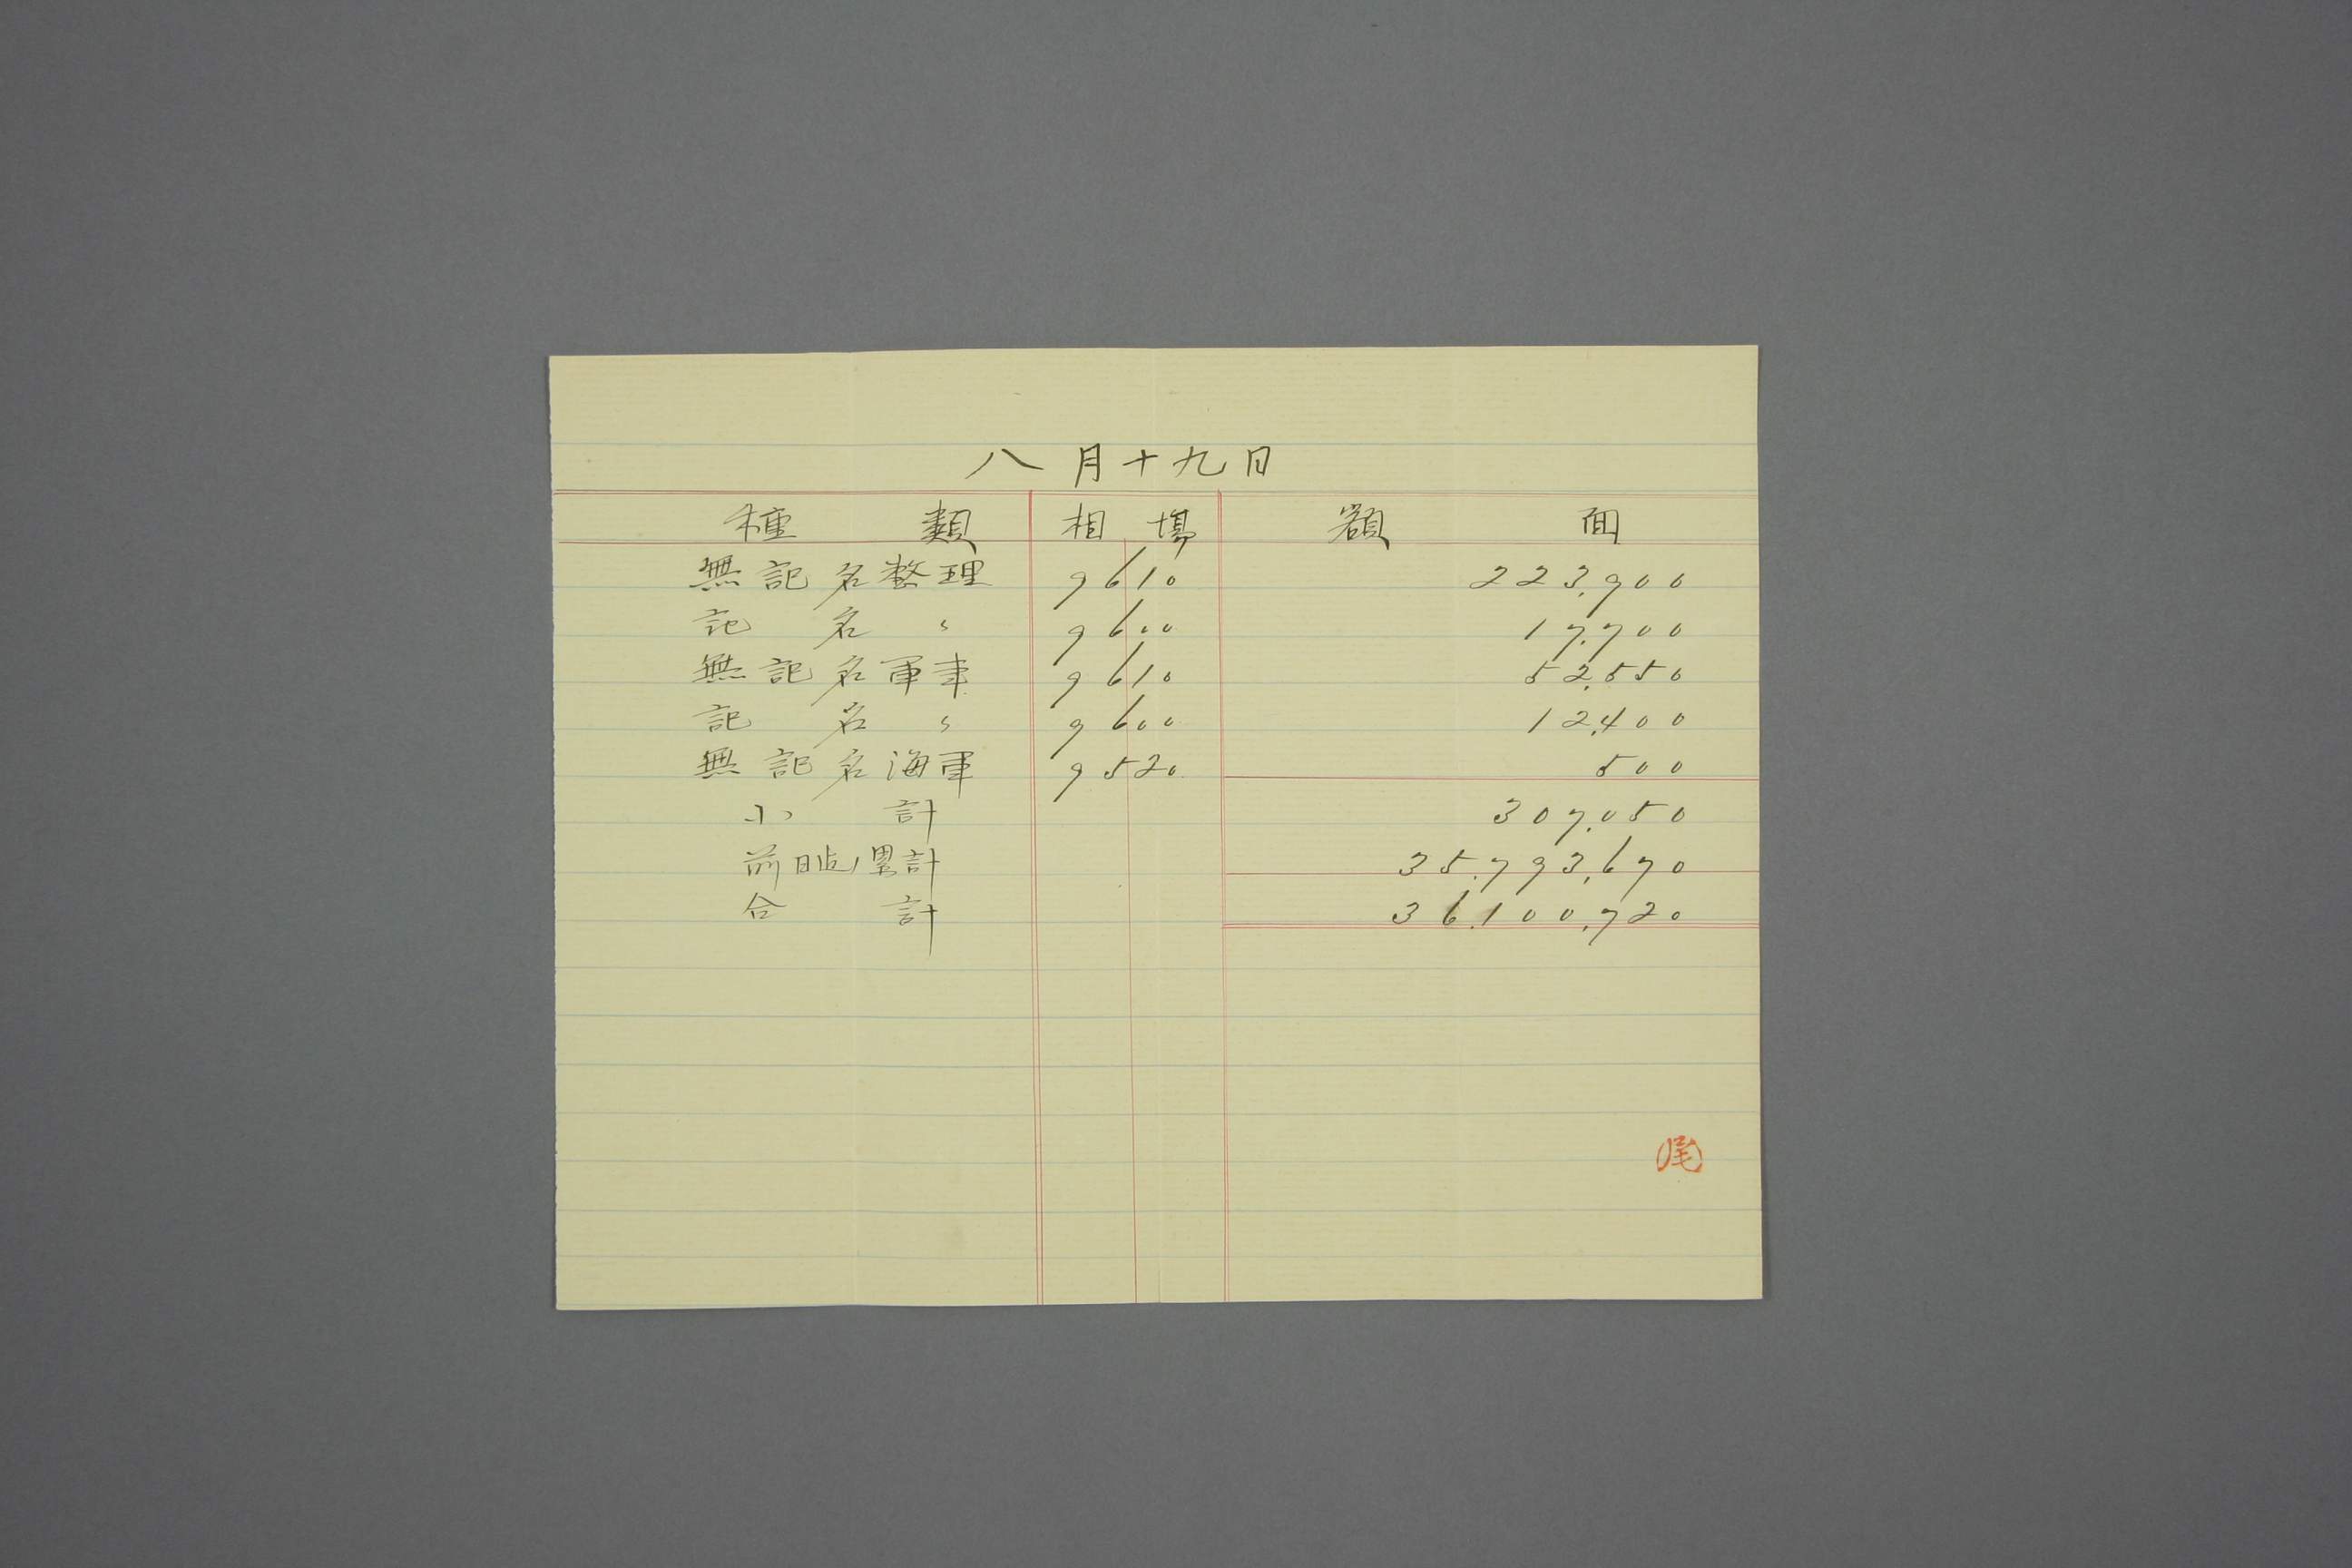 八月十九日
種類 相場 額面
無記名整理 9610 223,900
記名〃 9600 17,700
無記名軍事 9610 52,550
記名〃 9600 12,400
無記名海軍 9520 500
小計 307,050
前日迠ノ累計 35,793,670
合計 36,100,720
尾